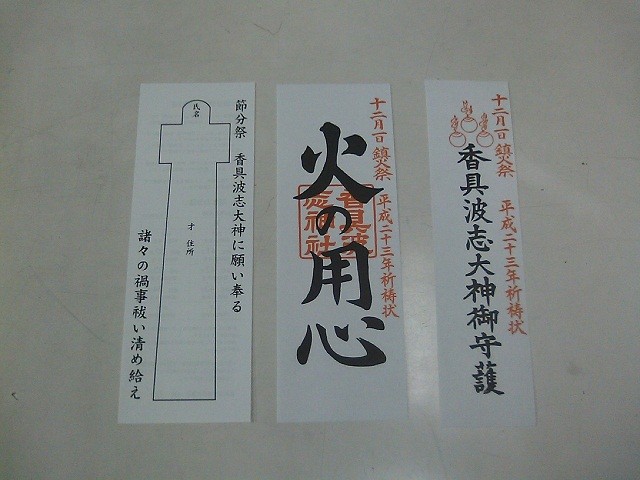 十二月一日 鎮火祭 平成二十三年祈祷状
香具波志大神御守護
十二月一日 鎮火祭 平成二十三年祈祷状
火の用心
香具波
志神社
節分祭 香具波志大神に願い奉る
氏名
才 住所
諸々の禍事祓い清め給え